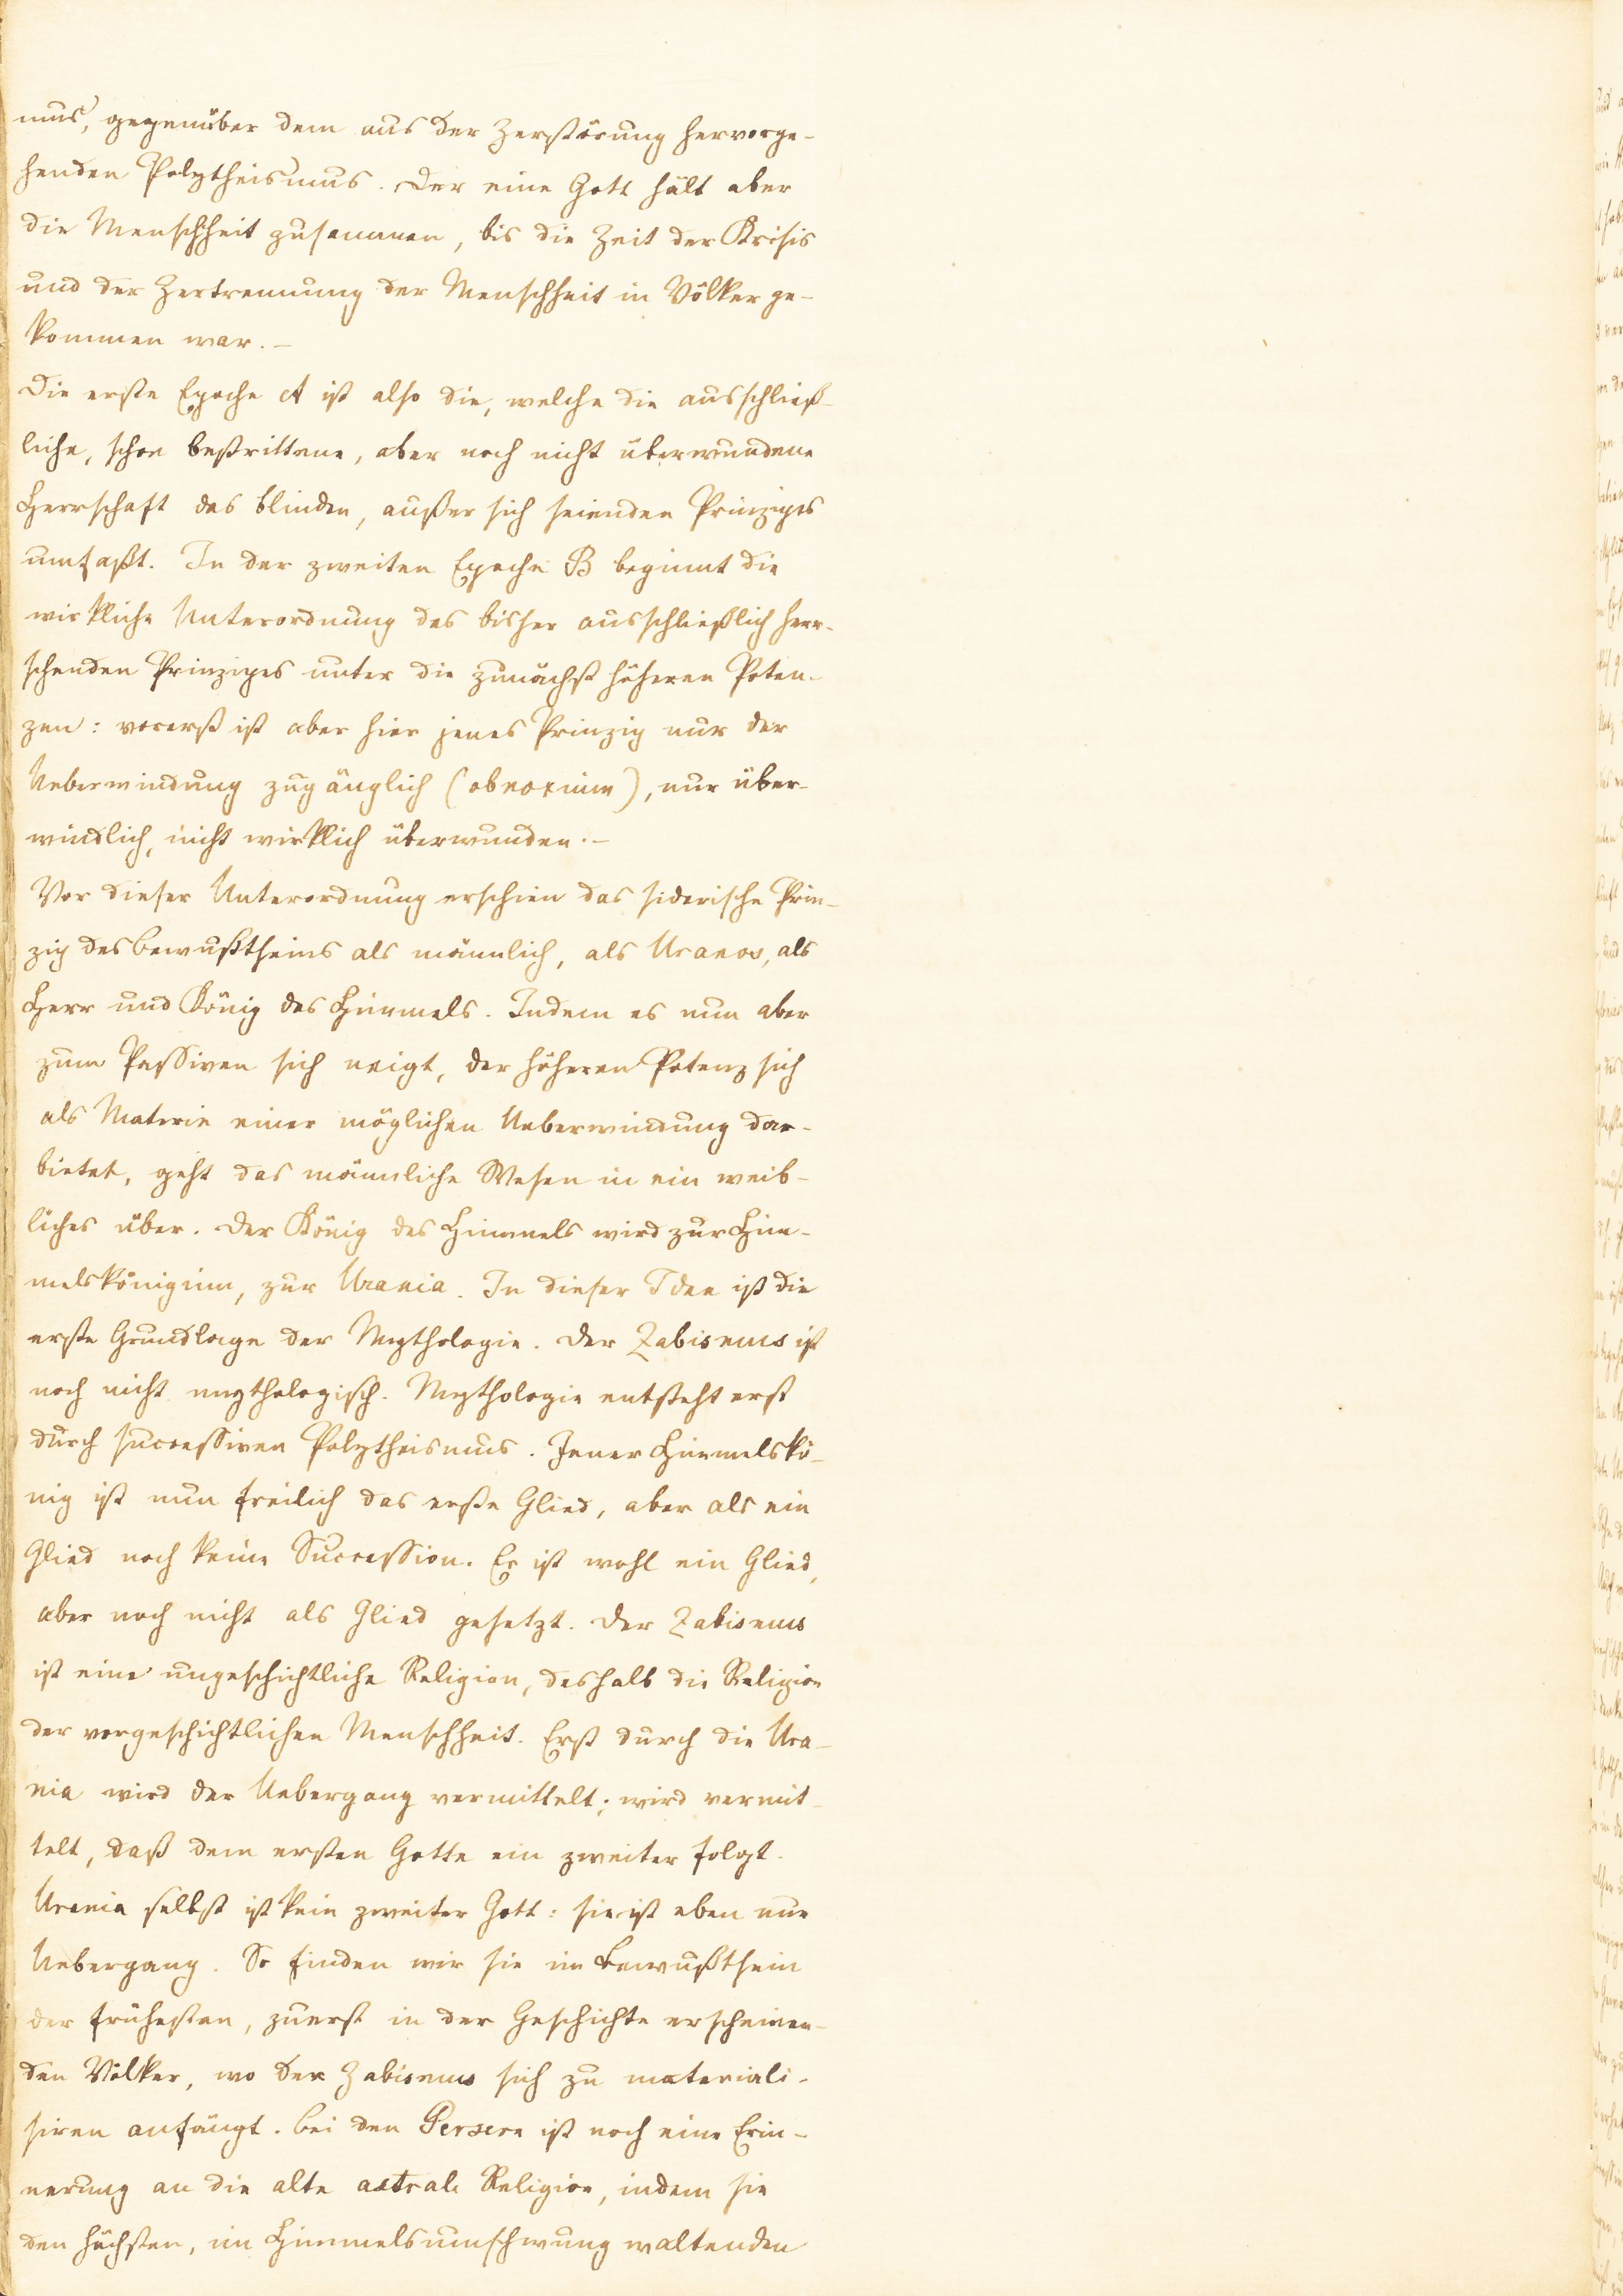 mus, gegenüber dem aus der Zerstörung hervorge-
henden Polytheismus. Der eine Gott hält aber
die Menschheit zusammen, bis die Zeit der Krisis
und der Zertrennung der Menschheit in Völker ge-
kommen war.—
Die erste Epoche A ist also die, welche die ausschließ-
liche, schon bestrittene, aber noch nicht überwundene
Herrschaft des blinden, außer sich seienden Prinzipes
umfaßt. In der zweiten Epoche B beginnt die
wirkliche Unterordnung des bisher ausschließlich herr-
schenden Prinzipes unter die zunächst höheren Poten-
zen: vorerst ist aber hier jenes Prinzip nur der
Ueberwindung zugänglich (obnoxium), nur über-
windlich, nicht wirklich überwunden.—
Vor dieser Unterordnung erschien das siderische Prin-
zip des Bewußtseins als männlich, als Uranos, als
Herr und König des Himmels. Indem es nun aber
zum Passiven sich neigt, der höheren Potenz sich
als Materie einer möglichen Ueberwindung dar-
bietet, geht das männliche Wesen in ein weib-
liches über. Der König des Himmels wird zur Him-
melsköniginn, zur Urania. In dieser Idee ist die
erste Grundlage der Mythologie. Der Zabismus ist
noch nicht mythologisch. Mythologie entsteht erst
durch successiven Polytheismus. Jener Himmelskö-
nig ist nun freilich das erste Glied, aber als ein
Glied noch keine Succession. Er ist wohl ein Glied,
aber noch nicht als Glied gesetzt. Der Zabismus
ist eine ungeschichtliche Religion, deshalb die Religion
der vorgeschichtlichen Menschheit. Erst durch die Ura-
nia wird der Uebergang vermittelt; wird vermit-
telt, daß dem ersten Gotte ein zweiter folgt.
Urania selbst ist kein zweiter Gott: sie ist eben nur
Uebergang. So finden wir sie im Bewußtsein
der frühesten, zuerst in der Geschichte erscheinen-
den Völker, wo der Zabismus sich zu materiali-
siren anfängt. Bei den Persern ist noch eine Erin-
nerung an die alte astrale Religion, indem sie
den höchsten, im Himmelsumschwung waltenden